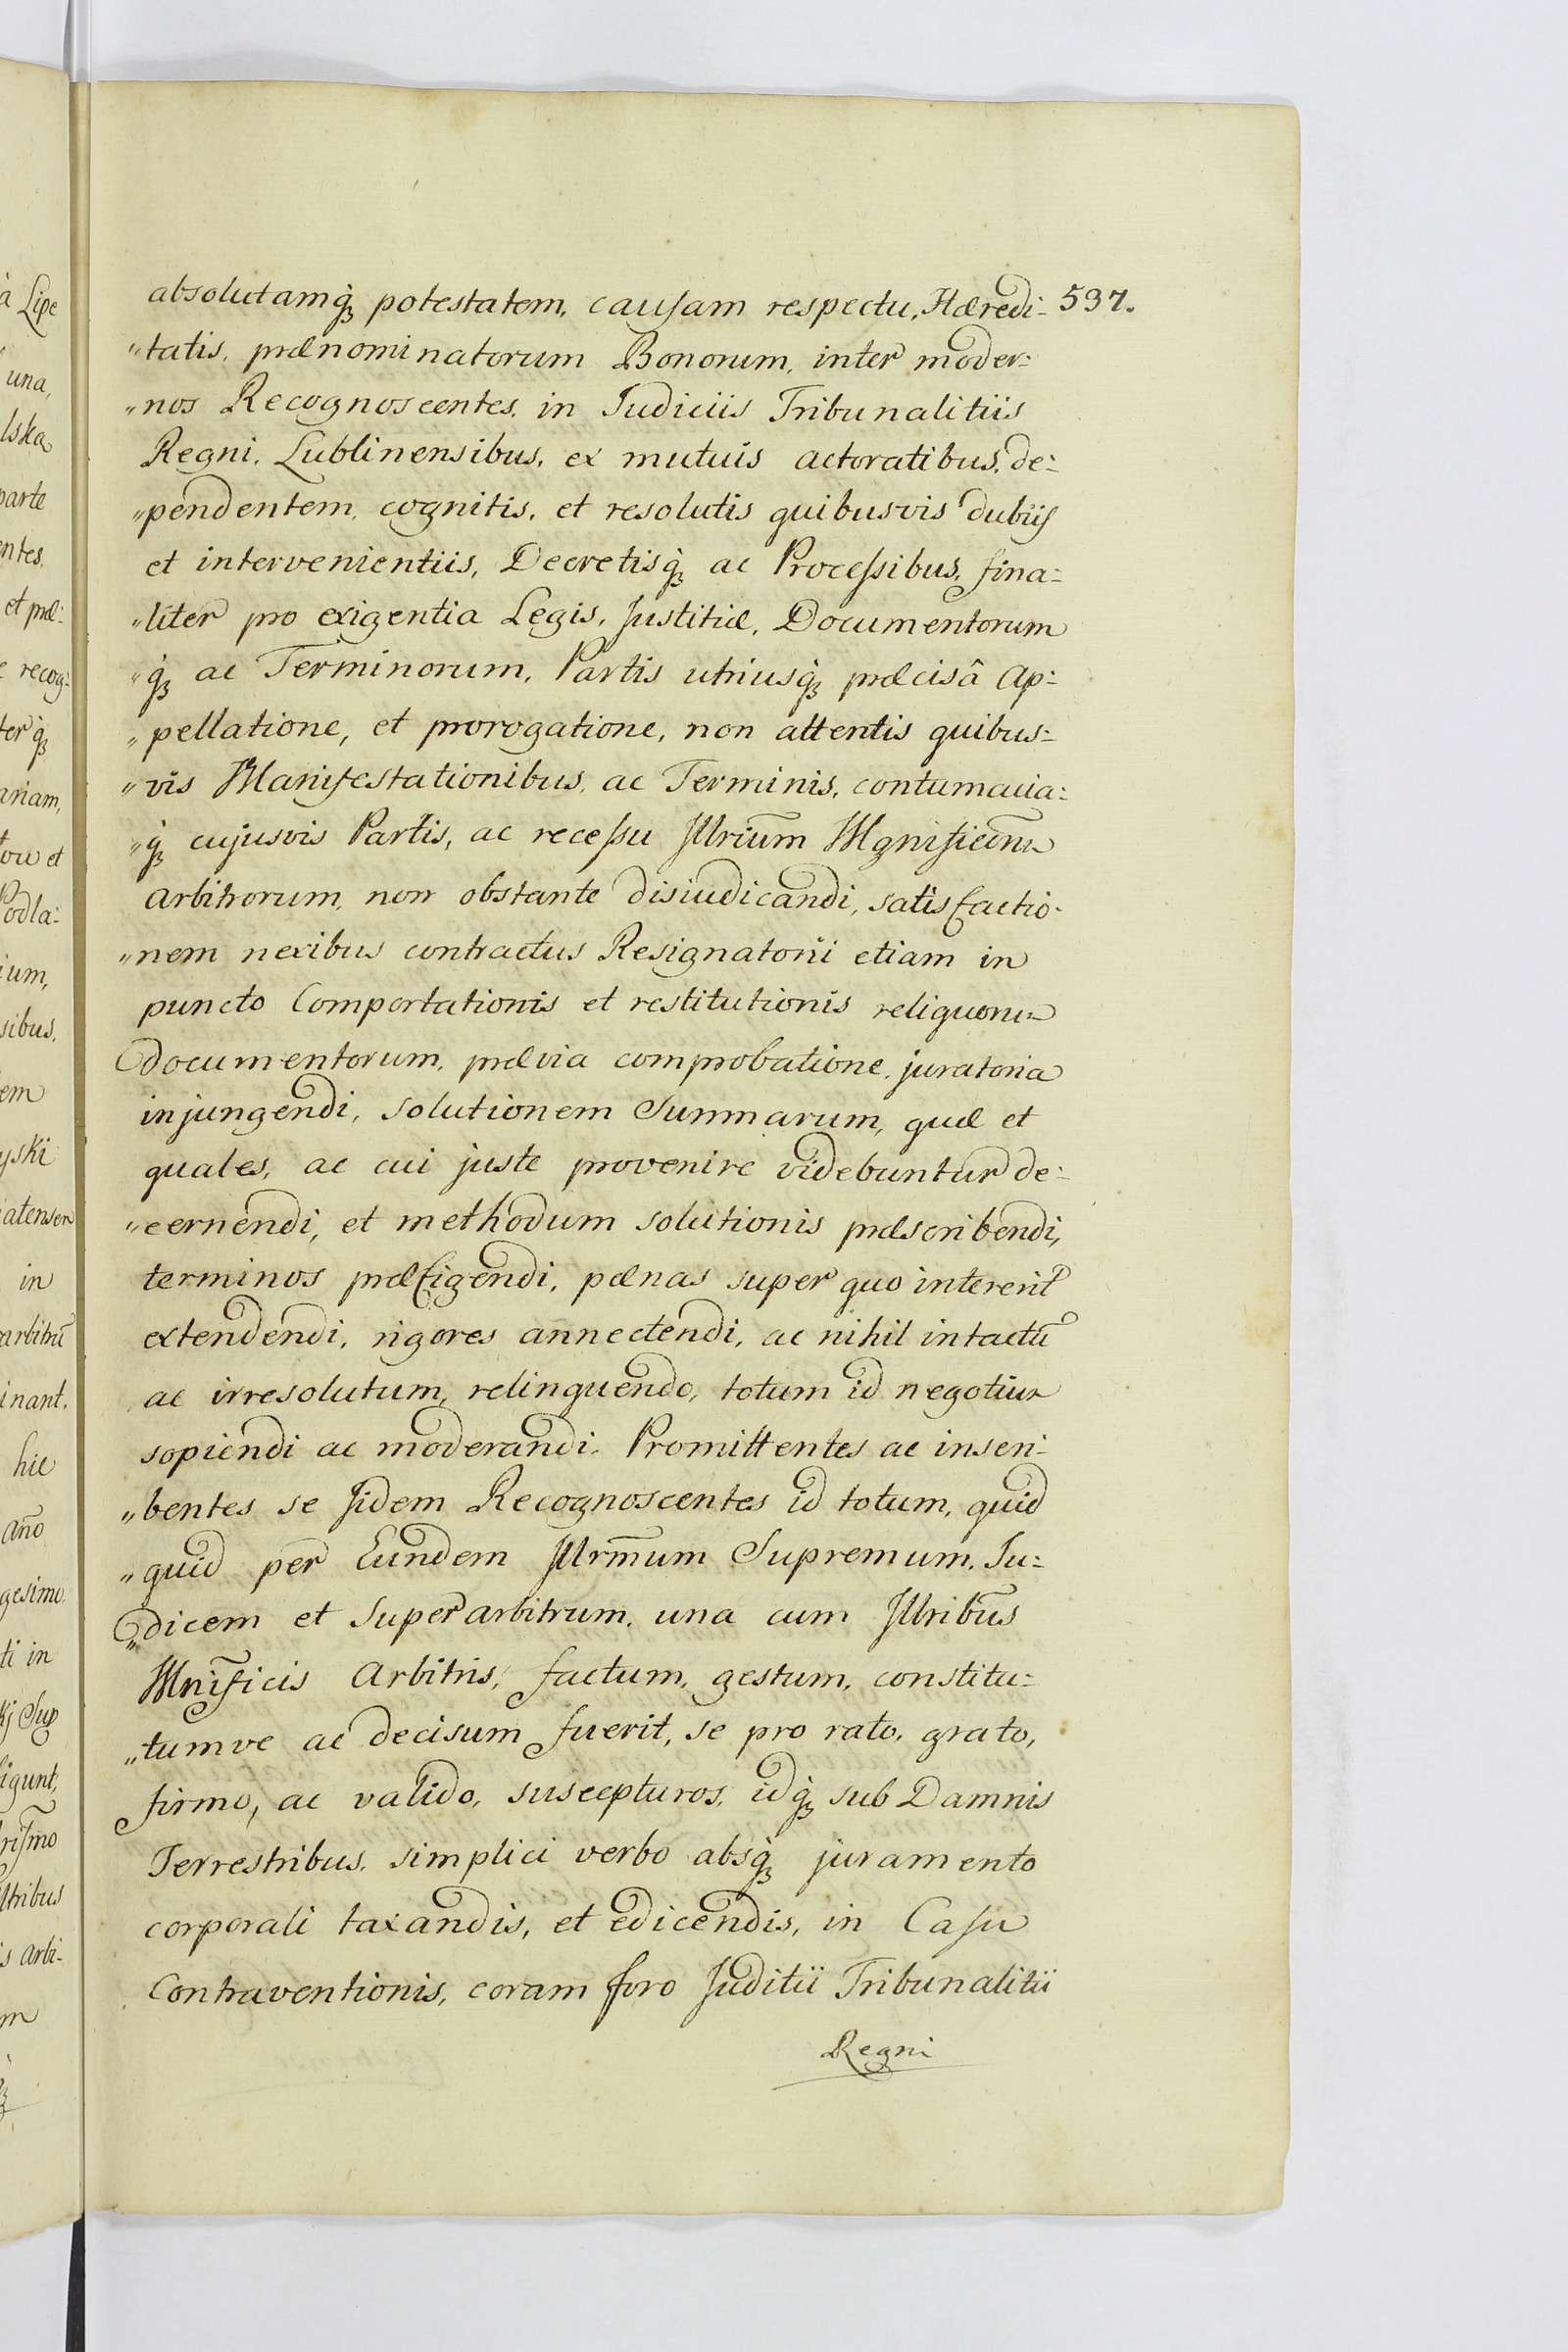 absolutamq́ȝ potestatem, causam respectu, Hæredi- 537.
„tatis, prænominatorum Bonorum, inter moder:
„nos Recognoscentes, in Judiciis Tribunalitiis
Regni, Lublinensibus, ex mutuis actoratibus, de:
„pendentem, cognitis, et resolutis quibusvis dubijs
et intervenientiis, Decretisq́ȝ ac Processibus, fina:
„liter pro exigentia Legis, Justitiæ, Documentorum
„q́ȝ ac Terminorum, Partis utriusq́ȝ præcisâ Ap:
„pellatione, et prorogatione, non attentis quibus:
„vis Manifestationibus, ac Terminis, contumacia:
„q́ȝ cujusvis Partis, ac recessu Jllriũm Mgnificorũm
Arbitrorum, non obstante disiudicandi, satisfactio-
„nem nexibus contractus Resignatorii etiam in
puncto Comportationis et restitutionis reliquorum
documentorum, prævia comprobatione, juratoria
injungendi, solutionem Summarum, quæ et
quales, ac cui juste provenire videbuntur de:
„cernendi, et methodum solutionis præscribendi,
terminos præfigendi, pænas super quo intererit
extendendi, rigores annectendi, ac nihil intactũ
ac irresolutum, relinquendo, totum id negotium
sopiendi ac moderandi. Promittentes ac inscri-
„bentes se Jidem Recognoscentes id totum, quid
„quid per Eundem Jllrm̃um Supremum, Ju:
„dicem et Superarbitrum, una cum Jllribũs
Mnificis Arbitris, factum, gestum, constitu:
„tumve ac decisum fuerit, se pro rato, grato,
firmo, ac valido, suscepturos, idq́ȝ sub Damnis
Terrestribus, simplici verbo absq́ȝ juramento
corporali taxandis, et edicendis, in Casu
Contraventionis, coram foro Juditii Tribunalitii
Regni